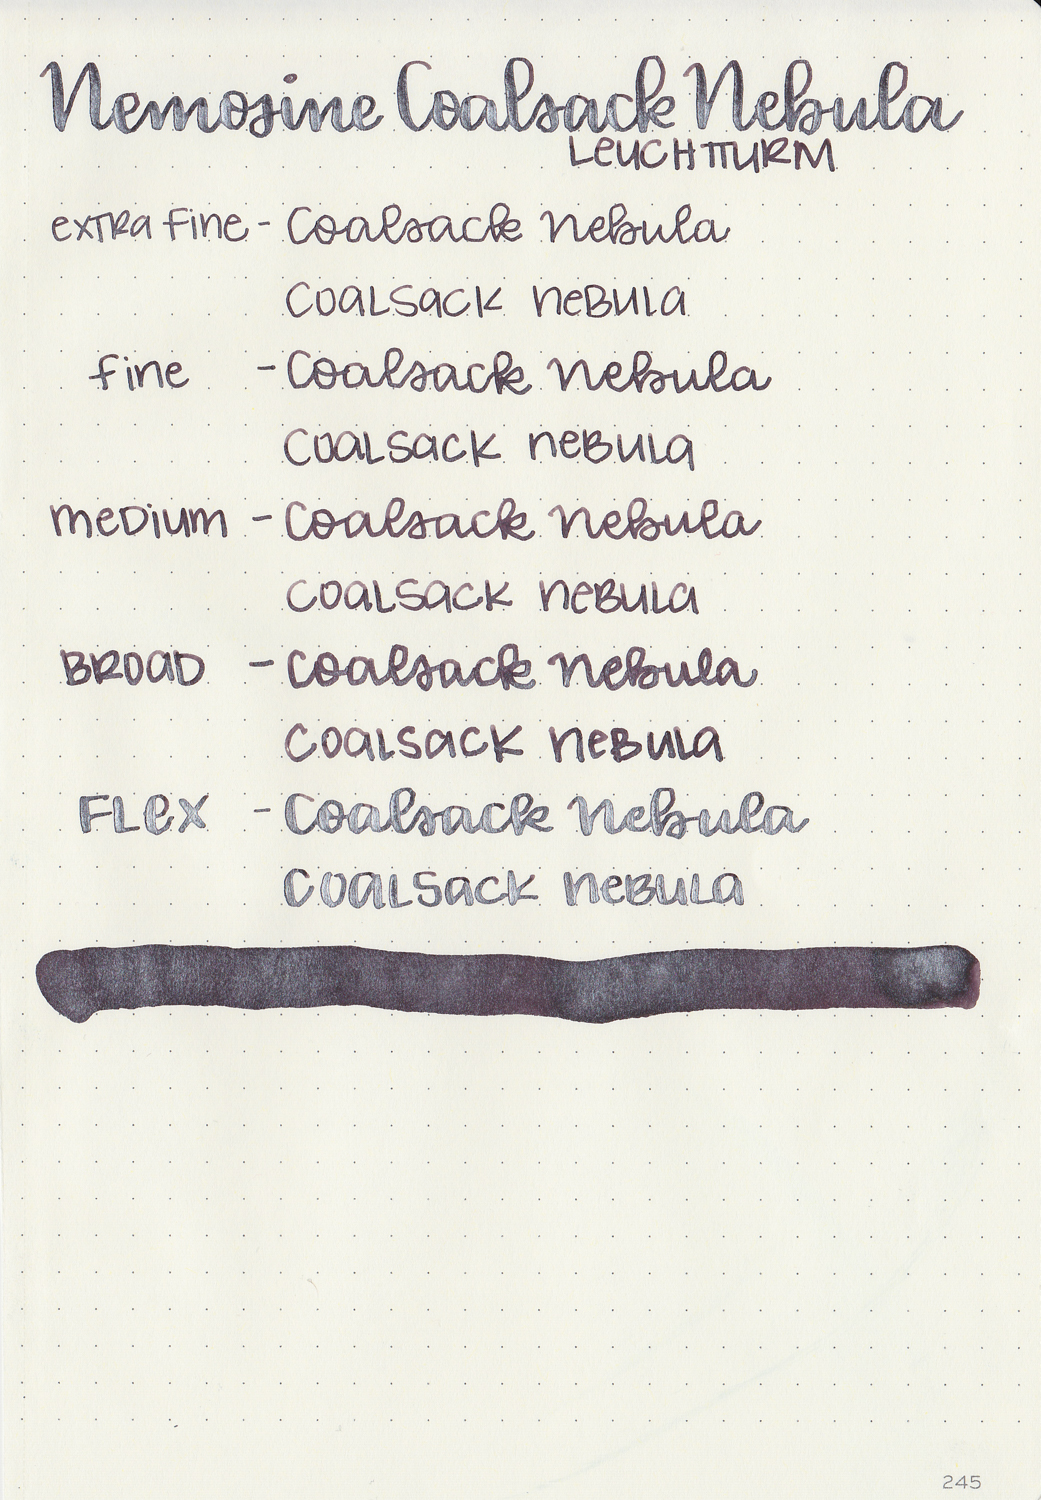 Nemosine Coalsack Nebula
LEUCHTTURM
extra fine - Coalsack Nebula
COALSACK NEBULA
fine - Coalsack Nebula
COALSACK NEBULA
medium - Coalsack Nebula
COALSACK NEBULA
BROAD - Coalsack Nebula
COALSACK NEBULA
FLEX - Coalsack Nebula
COALSACK NEBULA
245